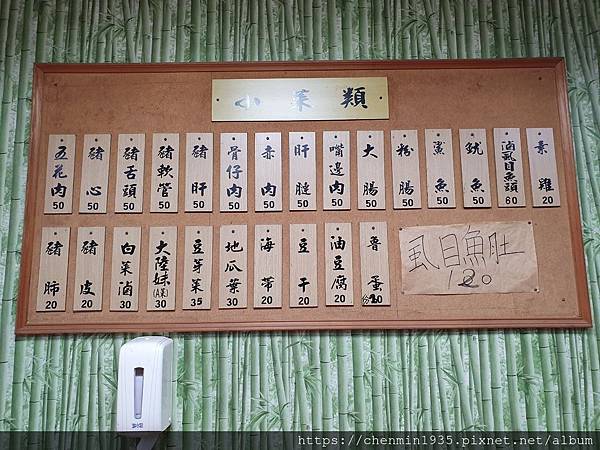 小菜類
五花肉 50
豬心 50
豬舌頭 50
豬軟管 50
豬肝 50
骨仔肉 50
赤肉 50
肝腱 50
嘴邊肉 50
大腸 50
粉腸 50
鯊魚 50
魷魚 50
滷虱目魚頭 60
素雞 20
豬肺 20
豬皮 20
白菜滷 30
大陸妹(A菜) 30
豆芽菜 35
地瓜葉 30
海帶 20
豆干 20
油豆腐 20
魯蛋 20
虱目魚肚
120
https://chenmin1935.pixnet.net/album